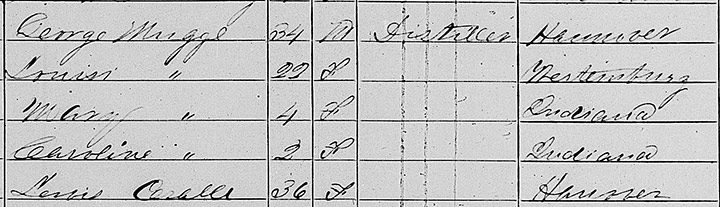 George Mugge 34 M Distiller Hannover
Louisi " 22 F Wertemburg
Mary " 4 F Indiana
Caroline " 2 F Indiana
Louis 36 F Hanover